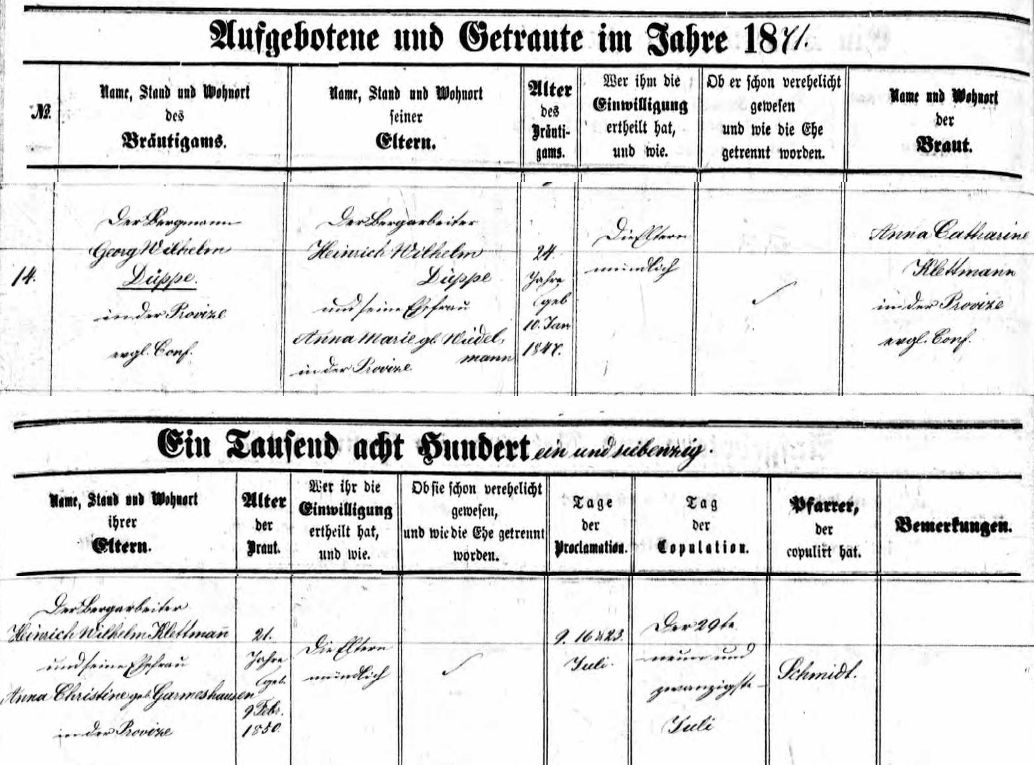 Aufgebotene und Getraute im Jahre 1871.
№
Name, Stand und Wohnort
des
Bräutigams.
Name, Stand und Wohnort
seiner
Eltern.
Alter
des
Bräuti-
gams.
Wer ihm die
Einwilligung
ertheilt hat,
und wie.
Ob er schon verehelicht
gewesen
und wie die Ehe
getrennt worden.
Name und Wohnort
der
Braut.
14.
Der Bergmann
Georg Wilhelm
Düppe.
in der Provize
evgl. Conf.
Der Bergarbeiter
Heinrich Wilhelm
Düppe
und seine Ehefrau
Anna Marie gb. Wiedel,
mann
in der Provize
24.
Jahre
(geb
10. Jan
1847.
Die Eltern
mündlich
Anna Catharine
Klettmann
in der Provize
evgl. Conf.
Ein Tausend acht Hundert ein und siebenzig.
Name, Stand und Wohnort
ihrer
Eltern.
Alter
der
Braut.
Wer ihr die
Einwilligung
ertheilt hat,
und wie.
Ob sie schon verehelicht
gewesen,
und wie die Ehe getrennt
worden.
Tage
der
Proclamation.
Tag
der
Copulation.
Pfarrer,
der
copulirt hat.
Bemerkungen.
Der Bergarbeiter
Heinrich Wilhelm Klettmañ
und seine Ehefrau
Anna Christine geb. Garmeshausen
in der Provize
21.
Jahre
(geb.
9 Febr.
1850.
Die Eltern
mündlich
9. 16 u 23.
Juli.
Der 29te
neun und
zwanzigste
Juli
Schmidt.